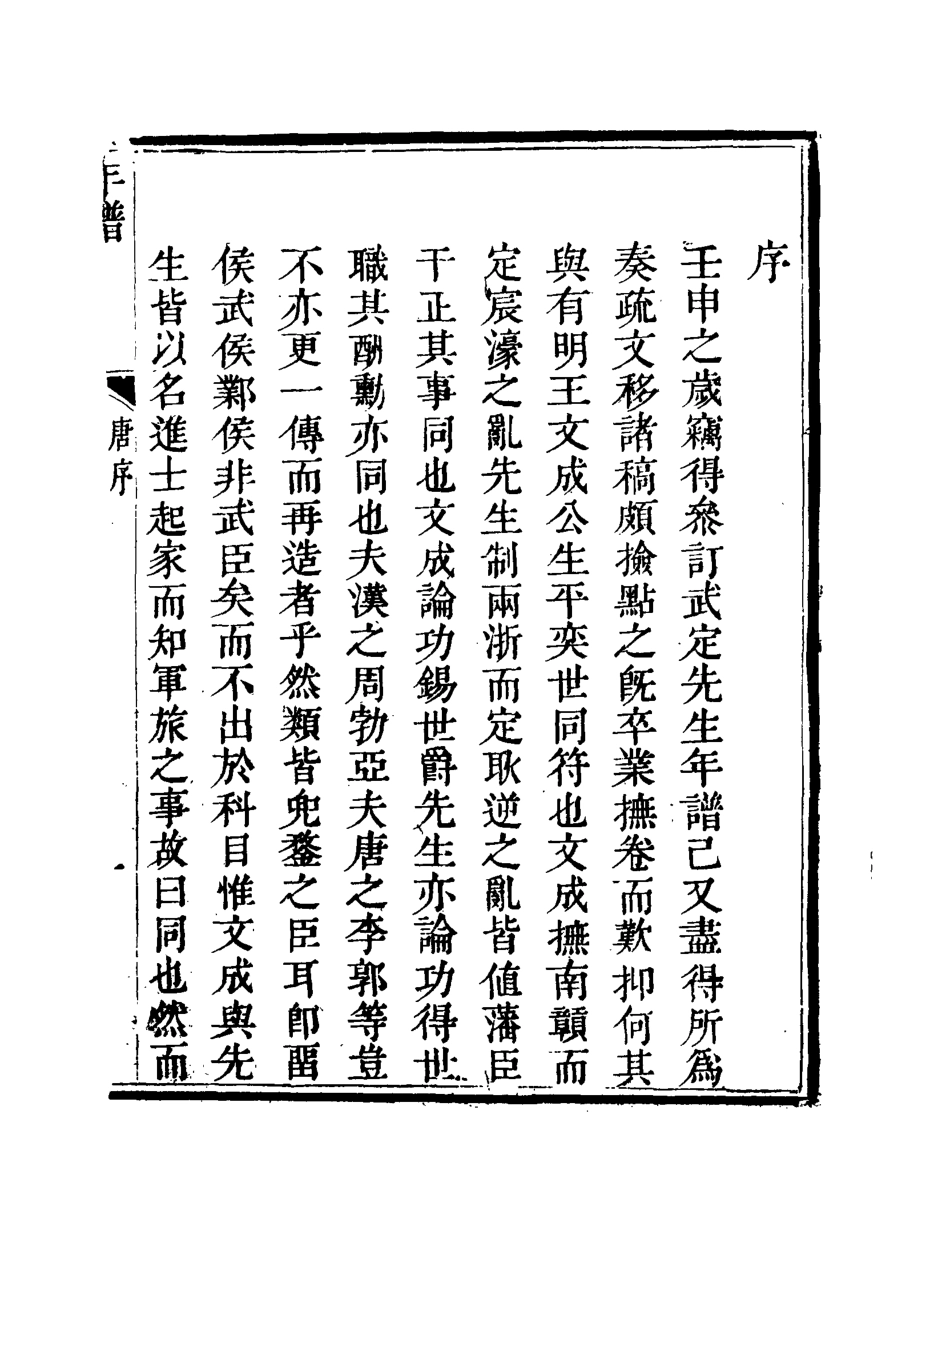 序
壬申之歲竊得叅訂武定先生年譜己又盡得所爲
奏疏文移諸稿頗撿點之旣卒業撫卷而歎抑何其
與有明王文成公生平奕世同符也文成撫南贛而
定宸濠之亂先生制兩浙而定耿逆之亂皆値藩臣
干正其事同也文成論功錫世爵先生亦論功得世
職其酬勳亦同也夫漢之周勃亞夫唐之李郭等豈
不亦更一傳而再造者乎然類皆兜鍪之臣耳卽畱
侯武侯鄴侯非武臣矣而不出於科目惟文成與先
生皆以名進士起家而知軍旅之事故曰同也然而
年譜
唐序